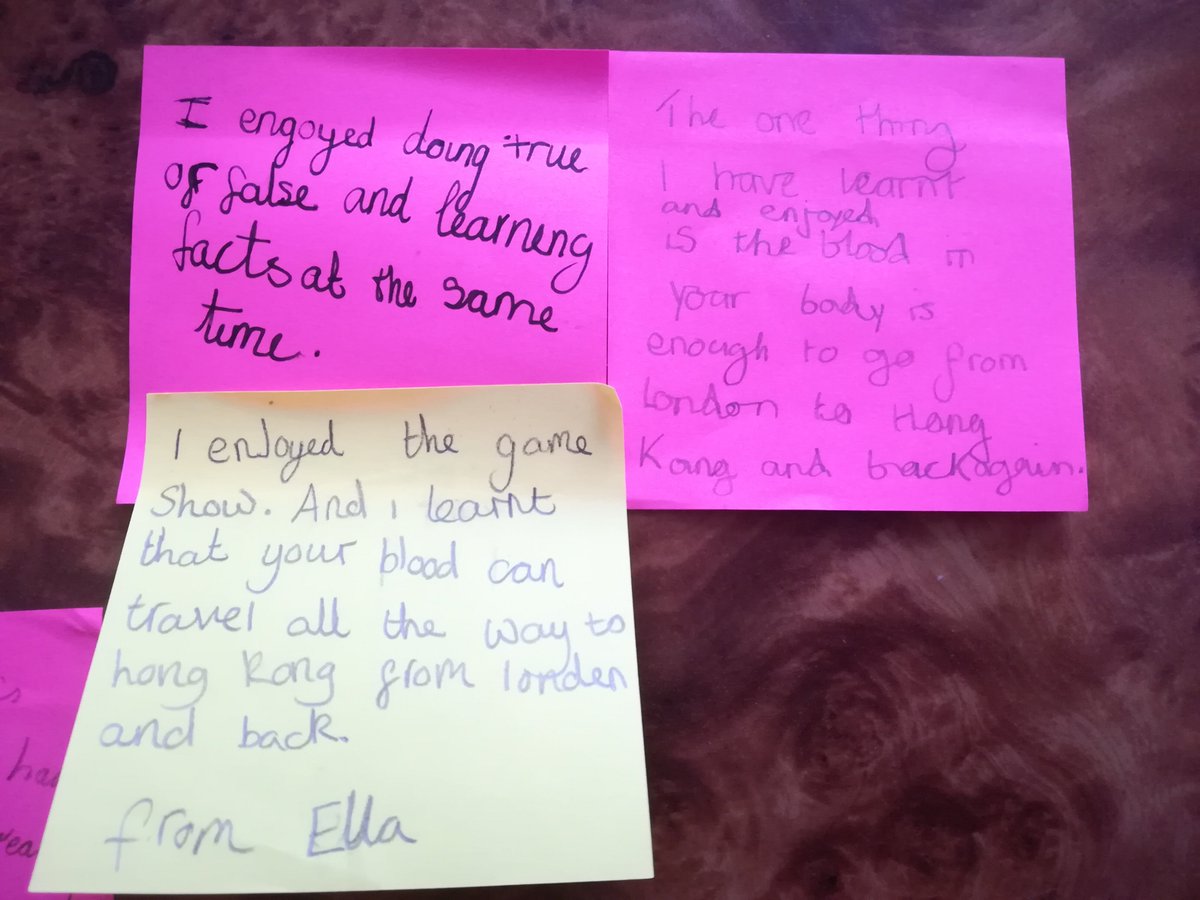 I engoyed doing true
or false and learning
facts at the same
time.
The one thing
I have learnt
and enjoyed
is the blood in
your body is
enough to go from
London to Hong
Kong and back again.
I enJoyed the game
Show. And i learnt
that your blood can
travel all the way to
hong kong from londen
and back.
from Ella